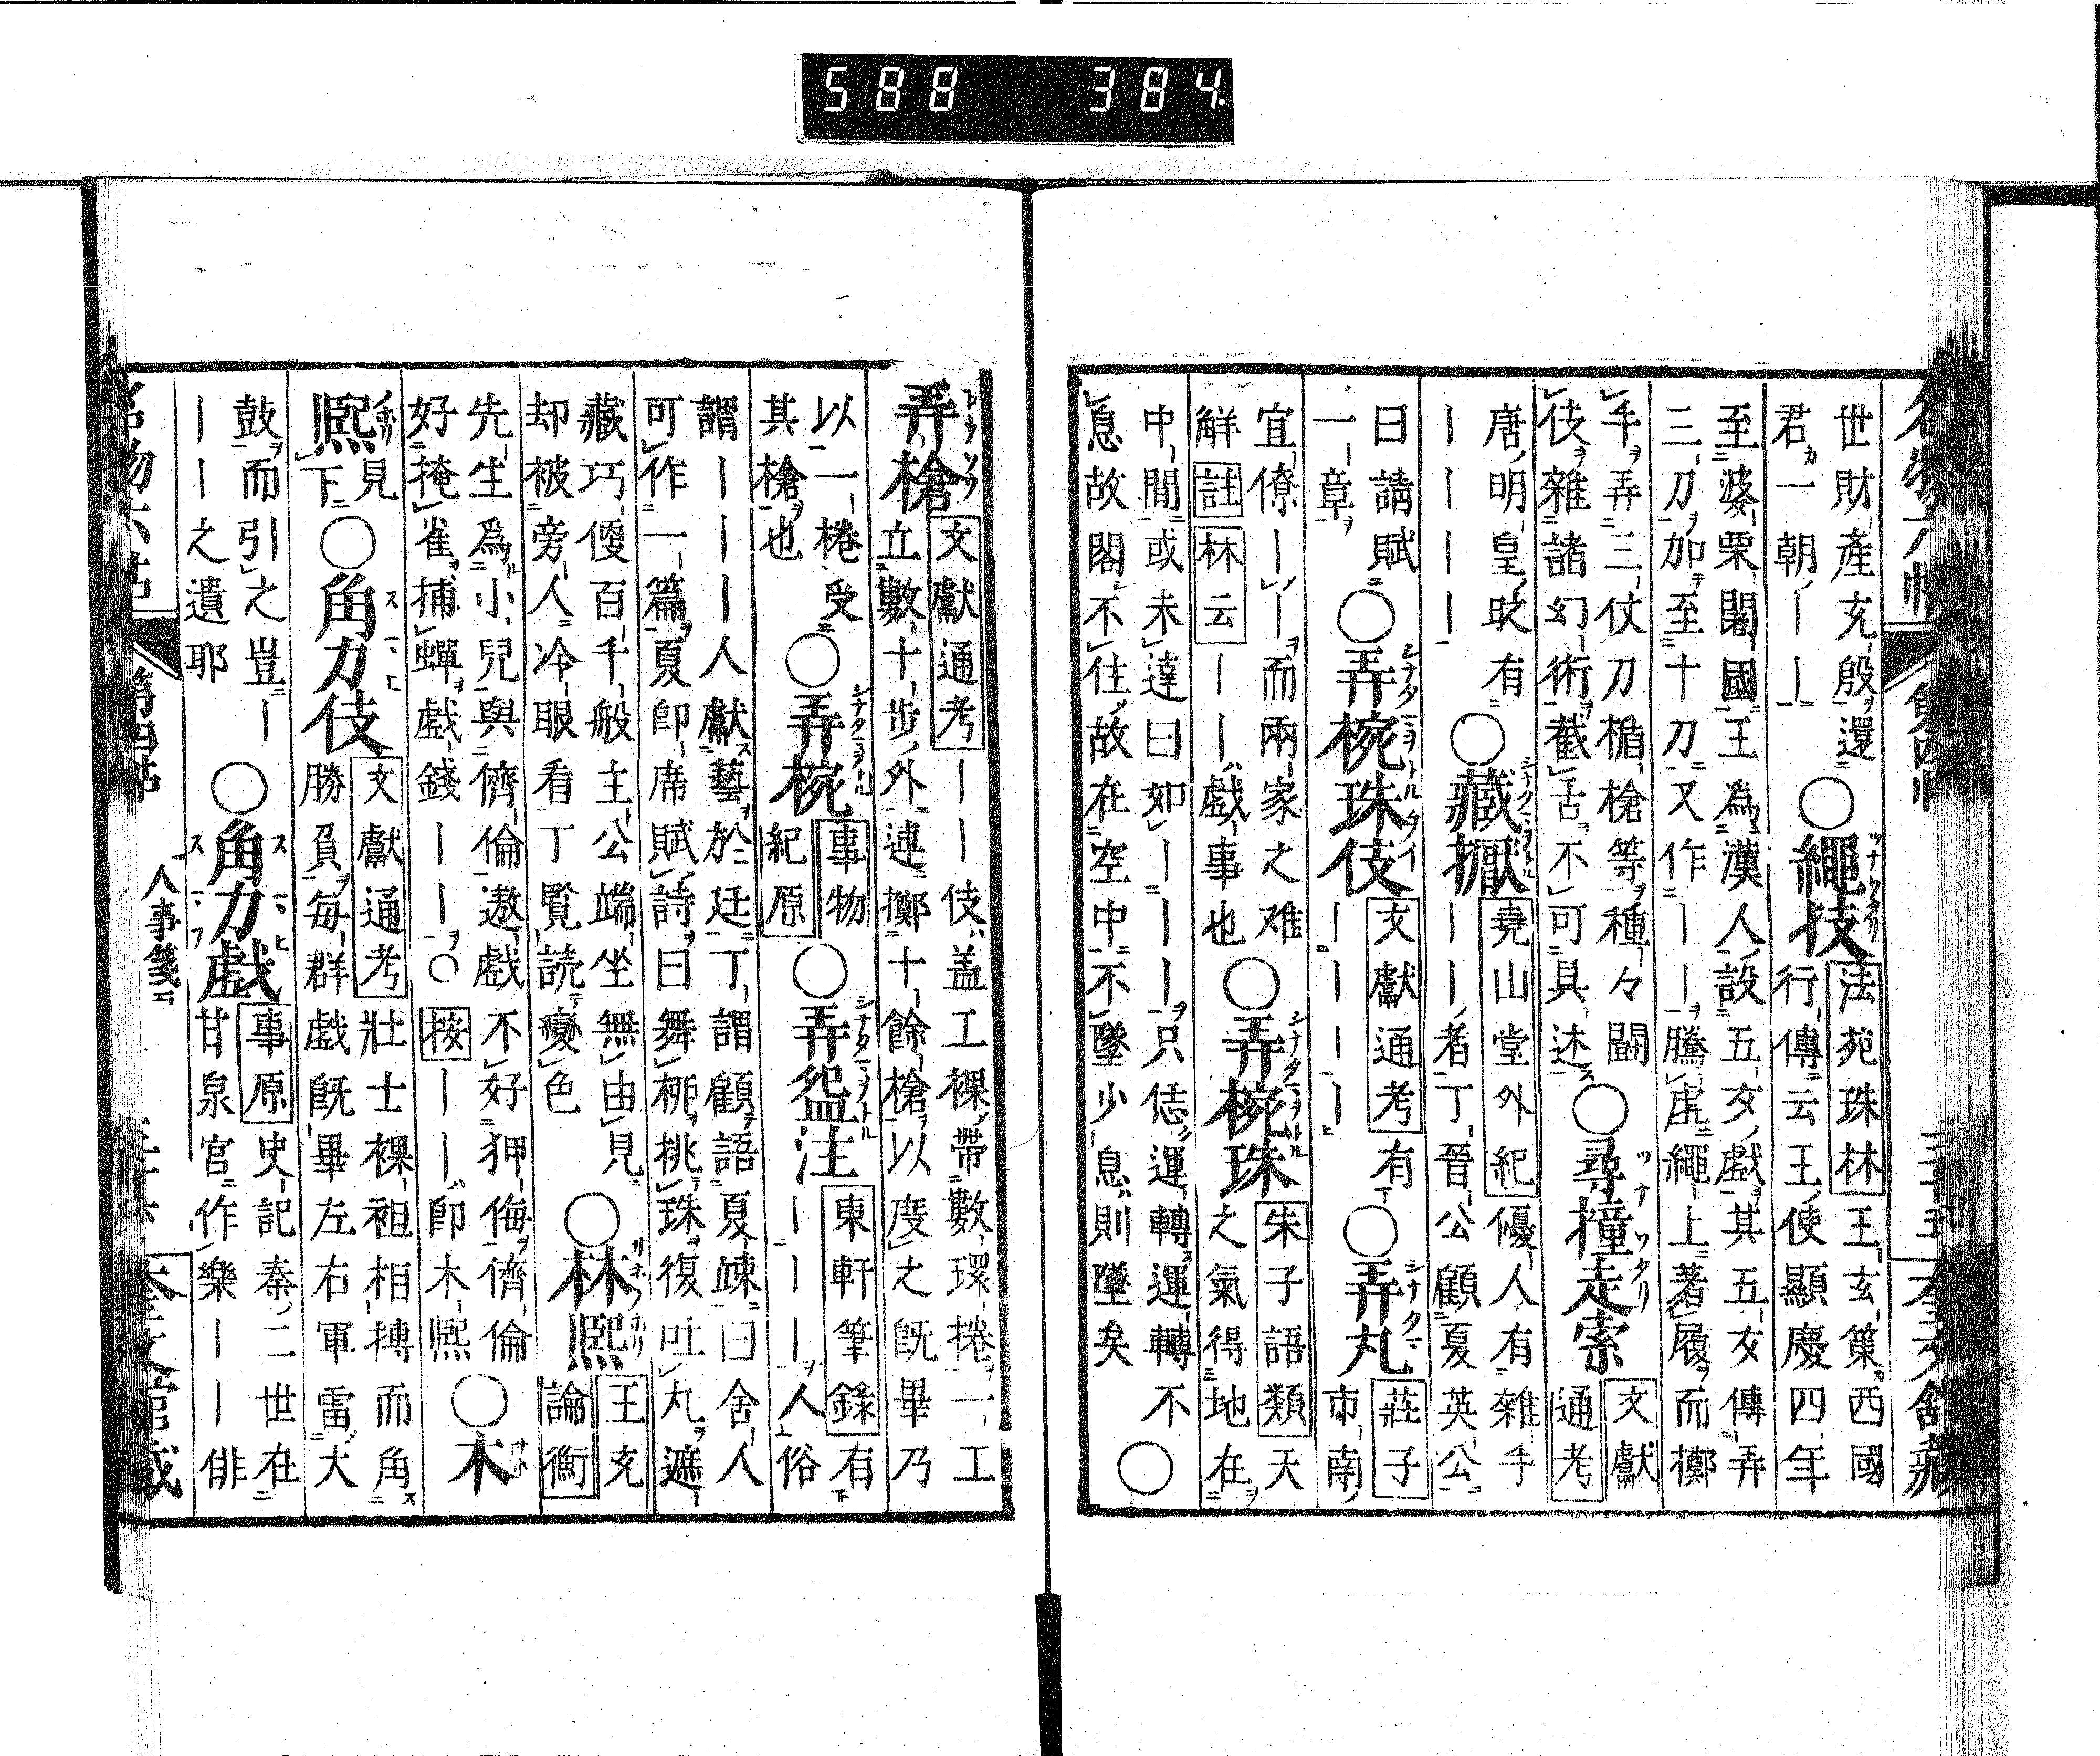 名物六帖　第四帖　三十五　奎文館藏
世財產充殷還
君一朝ーーー
○繩技
法苑珠林王玄策西國
行傳云王使顯慶四年
至婆栗闍國王為漢人設五女戲其五女傳弄
三刀加至十刀又作ーー騰虛繩上著履而擲
手弄三仗刀楯槍等種々關
伎雜諸幻術截舌不可具述
○尋橦走索
文獻
通考
唐明皇時有
ーーーー
○藏擫
堯山堂外紀優人有雜手
ーー者丁晉公顧夏英公
曰請賦
一章
○弄椀珠伎
文獻通考有
ーーーー
○弄丸
莊子
市南
宜僚ーー而兩家之难
觧註林云ーー戲事也
○弄椀珠
朱子語類天
之氣得地在
中間或未達曰如ーーー只恁運轉運轉不
息故閣不住故在空中不墜少息則墜矣
○
弄槍
文獻通考ーー伎盖工裸帶數環捲一工
立數十步外連擲十餘槍以度之既畢乃
以一捲受
其槍也
○弄椀
事物
紀原
○弄盌注
東軒筆錄有
ーーー人俗
謂ーーー人獻藝於廷丁謂顧語夏竦曰舍人
可作一篇夏即席賦詩曰舞栁挑珠復吐丸遮
藏巧便百千般主公端坐無由見
却被旁人冷眼看丁覧読變色
○林熈
王充
論衡
先生爲小兒與儕倫遨戲不好狎侮儕倫
好掩雀捕蟬戲錢ーー○按ーー即木熈
○木
熈
見
下
○角力伎
文獻通考壯士裸袒相摶而角
勝負每群戲既畢左右軍雷大
鼓而引之豈ー
ーー之遺耶
○角力戲
事原史記秦二世在
甘泉宮作樂ーー俳
名物六帖　第四帖　人事箋二　三十六　奎文館藏
588　384